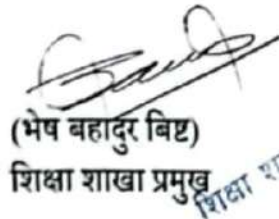 (भेष बहादुर बिष्ट)
शिक्षा शाखा प्रमुख
शिक्षा